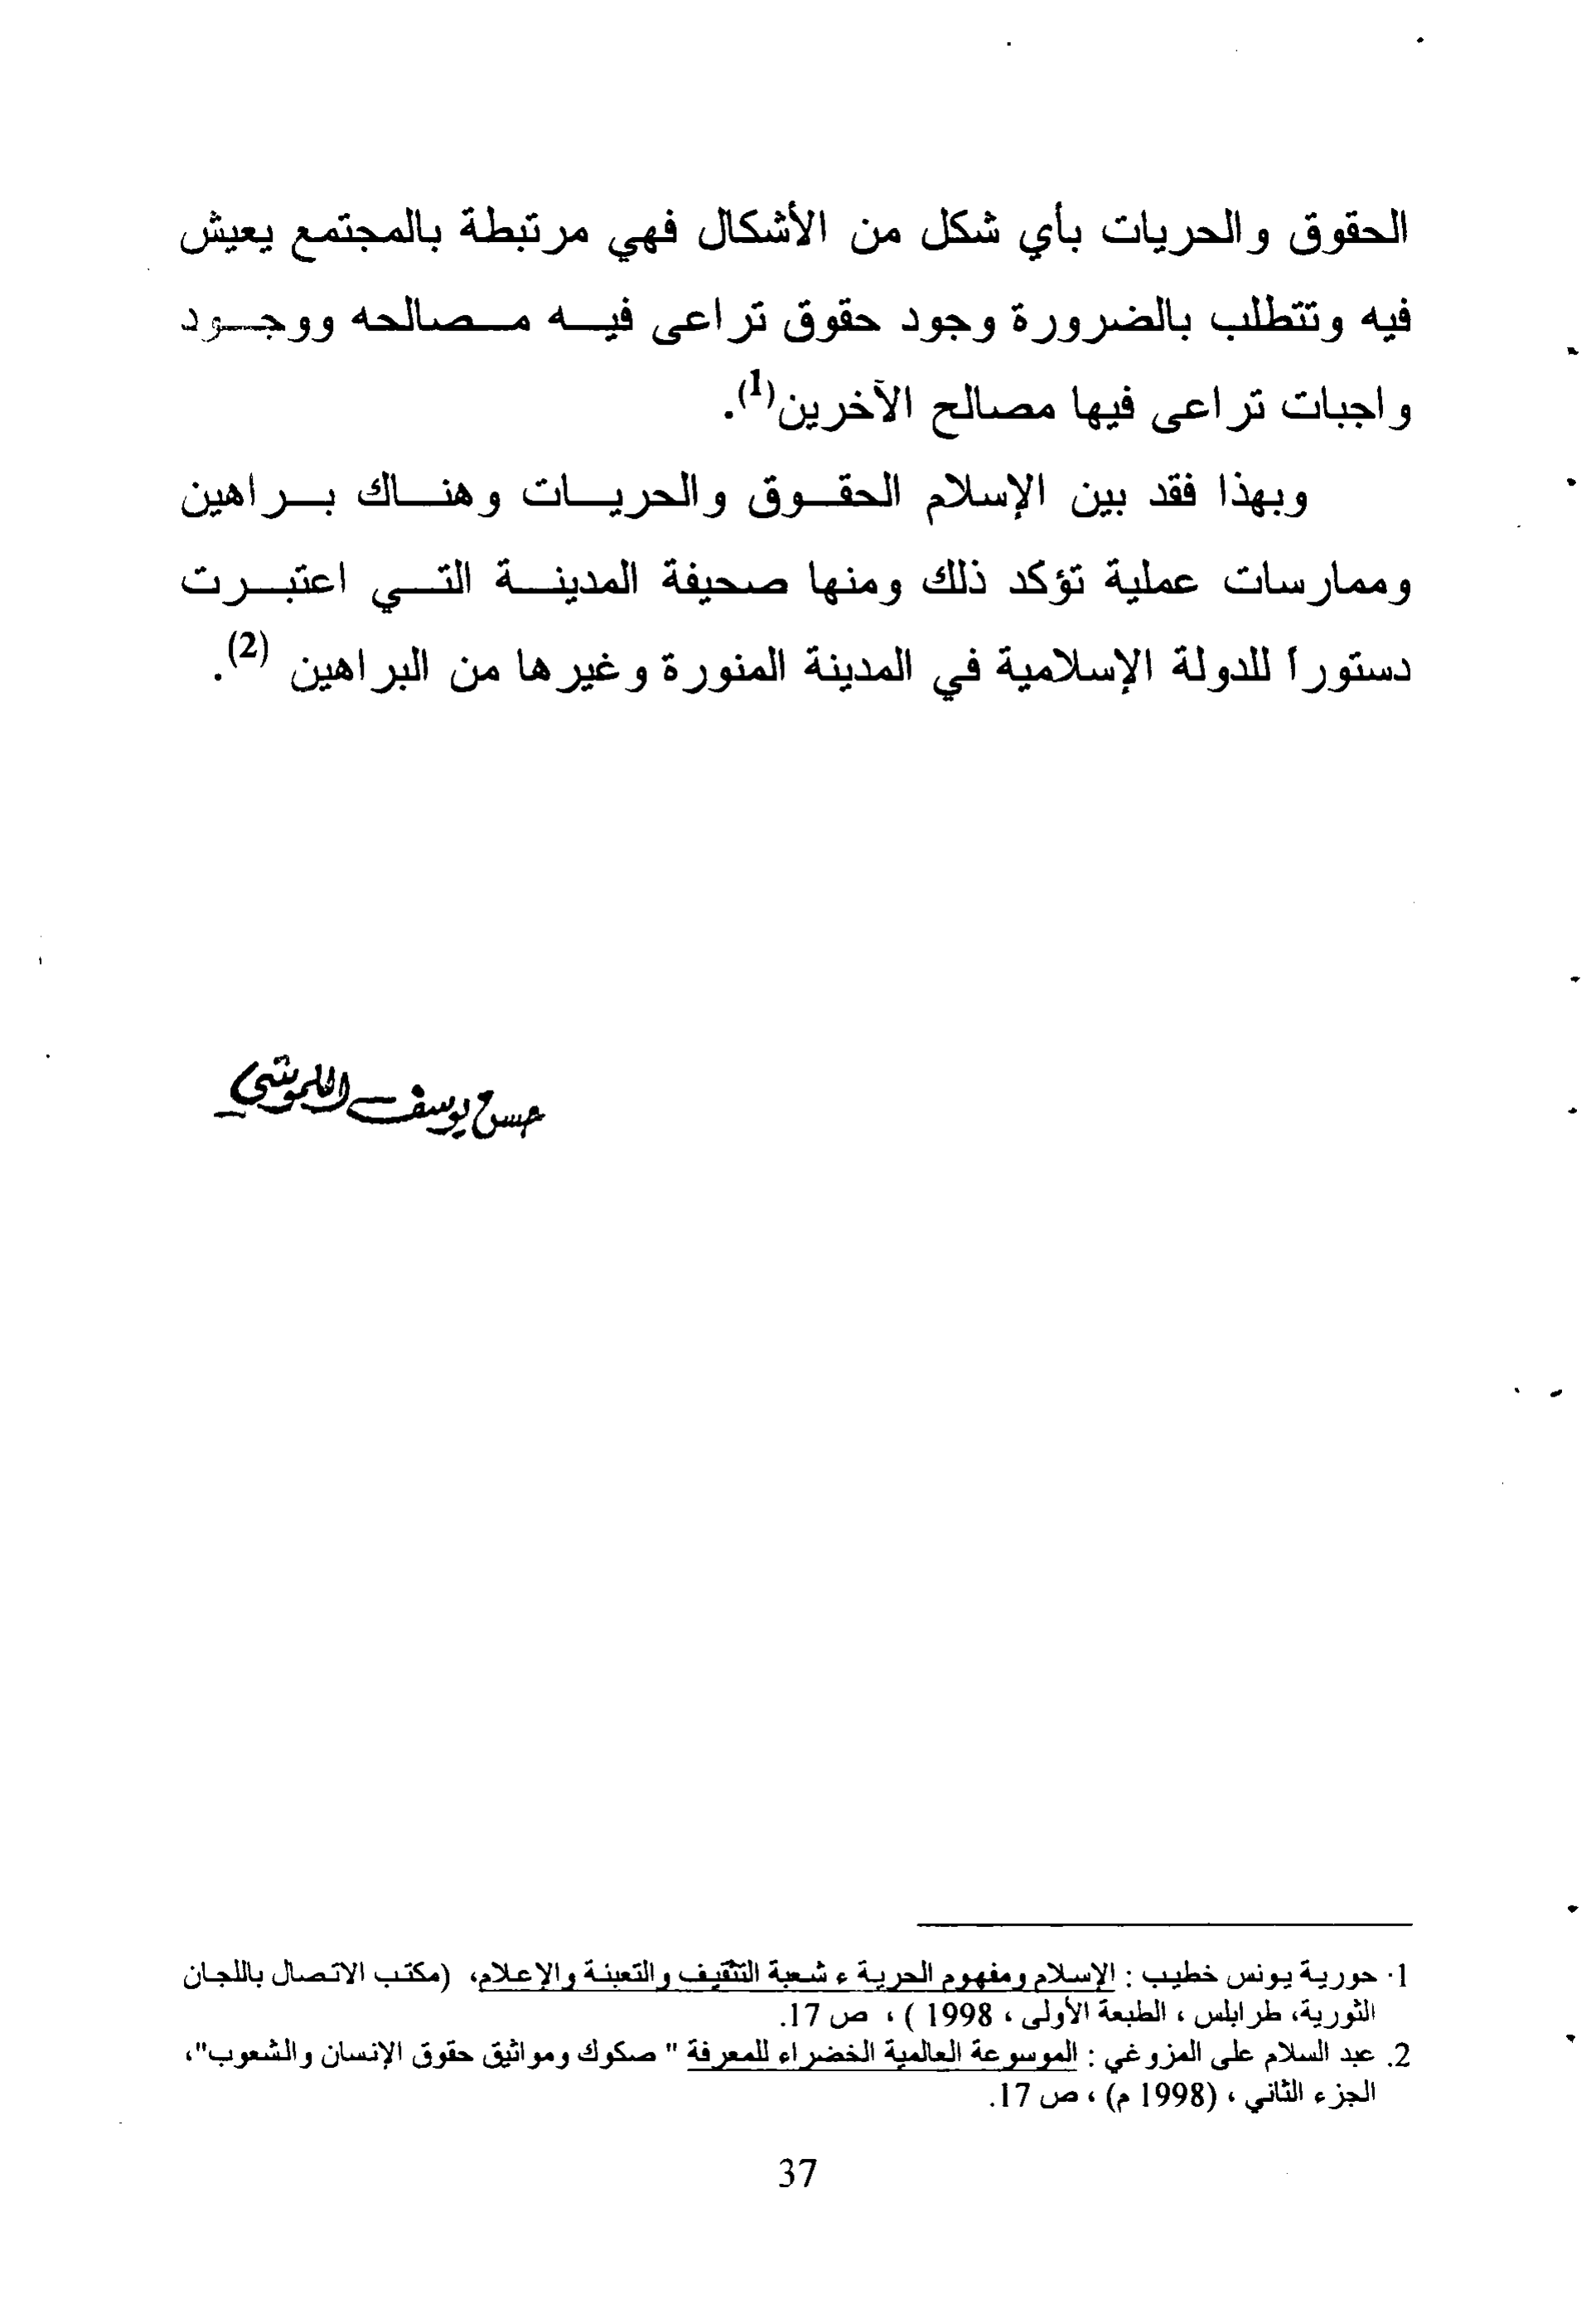 الحقوق والحريات بأي شكل من الأشكال فهي مرتبطة بالمجتمع يعيش
فيه وتتطلب بالضرورة وجود حقوق تراعى فيه مصالحه ووجود
واجبات تراعى فيها مصالح الآخرين(1).
وبهذا فقد بين الإسلام الحقوق والحريات وهناك براهين
وممارسات عملية تؤكد ذلك ومنها صحيفة المدينة التي اعتبرت
دستوراً للدولة الإسلامية في المدينة المنورة وغيرها من البراهين (2).
حسن يوسف
1. حورية يونس خطيب : الإسلام ومفهوم الحرية ء شعبة التثقيف والتعبئة والإعلام، (مكتب الاتصال باللجان
الثورية، طرابلس ، الطبعة الأولى ، 1998 ) ، ص 17.
2. عبد السلام على المزوغي : الموسوعة العالمية الخضراء للمعرفة " صكوك ومواثيق حقوق الإنسان والشعوب"،
الجزء الثاني ، (1998 م) ، ص 17.
37